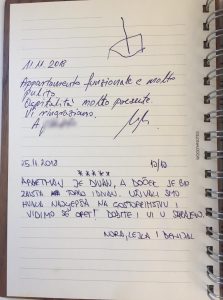 11.11.2018
Appartamento funzionale e molto
pulito
Ospitalità molto presente.
Vi ringraziamo.
A
25.11.2018 10/10
*****
APARTMAN JE DIVAN, A DOČEK JE BIO
ZAISTA TOPAO I DIVAN. UŽIVALI SMO
HVALA NAJLJEPŠA NA GOSTOPRIMSTVU I
VIDIMO SE OPET! DOĐITE I VI U SARAJEVO.
NORA, LEJLA I DENIJAL